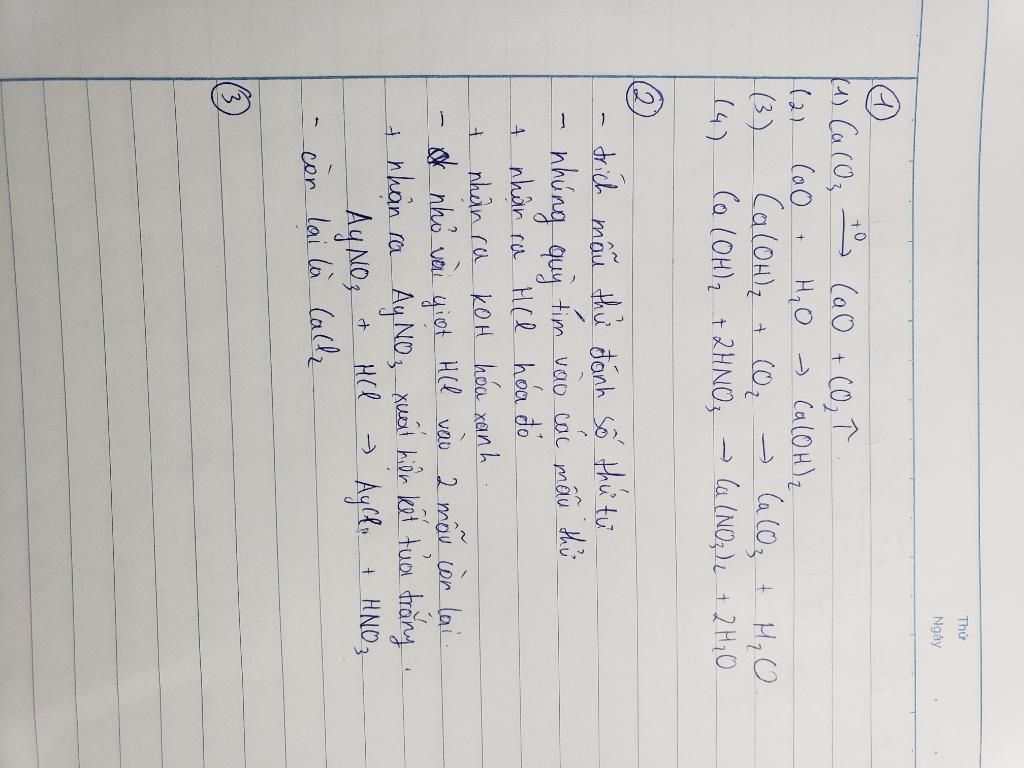 Thứ
Ngày
①
(1) CaCO₃ \xrightarrow{+0} CaO + CO₂↑.
(2) CaO + H₂O → Ca(OH)₂
(3) Ca(OH)₂ + CO₂ → CaCO₃ + H₂O.
(4) Ca(OH)₂ + 2HNO₃ → Ca(NO₃)₂ + 2H₂O
②
- trích mẫu thử đánh số thứ tự
- nhúng quỳ tím vào các mẫu thử
+ nhận ra HCl hóa đỏ
+ nhận ra KOH hóa xanh.
- nhỏ vài giọt HCl vào 2 mẫu còn lại.
+ nhận ra AgNO₃ xuất hiện kết tủa trắng.
AgNO₃ + HCl → AgCl↓ + HNO₃
- còn lại là CaCl₂
③